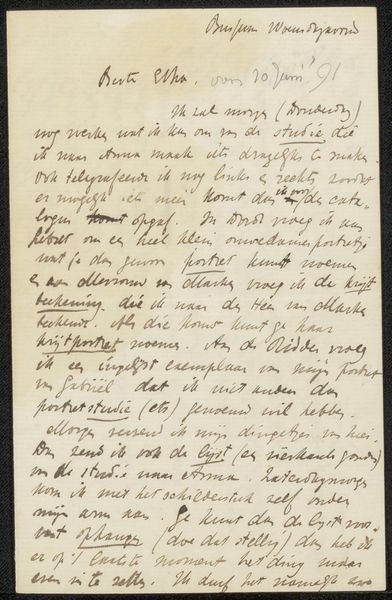 Bussum Woensdagavond
Beste Etha. voor 20 Juni '91
Ik zal morgen (Donderdag)
nog werken wat ik kan om van de studie die
ik naar Anna maak iets dragelijks te maken
Ook telegrafeerde ik nog links en rechts zoodat
er mogelijk iets meer komt dan ik voor de cata-
logus opgaf. In Dordt vroeg ik van
een heel klein
wat je dan gewoon portret kunt noemen
en aan Mevrouw van vroeg ik de krijt
teekening die ik naar den Heer van
teekende. Als die komt kunt ge haar
krijtportret noemen. Aan de Ridder vroeg
ik een ingelijst exemplaar van mijn portret
van Gabriël dat ik niet anders dan
portretstudie (ets) genoemd wil hebben.
Morgen verzend ik mijn dingetjes van hier.
Dan zend ik ook de lijst (een vierkante gouden)
van de studie naar Anna. Zaterdagmorgen
kom ik met het schilderstuk zelf onder
mijn arm aan. Ge kunt dan de lijst voo-
ruit ophangen (doe dat stellig) dan heb ik
er op 't laatste moment het ding maar
even in te zetten. Ik durf het namelijk